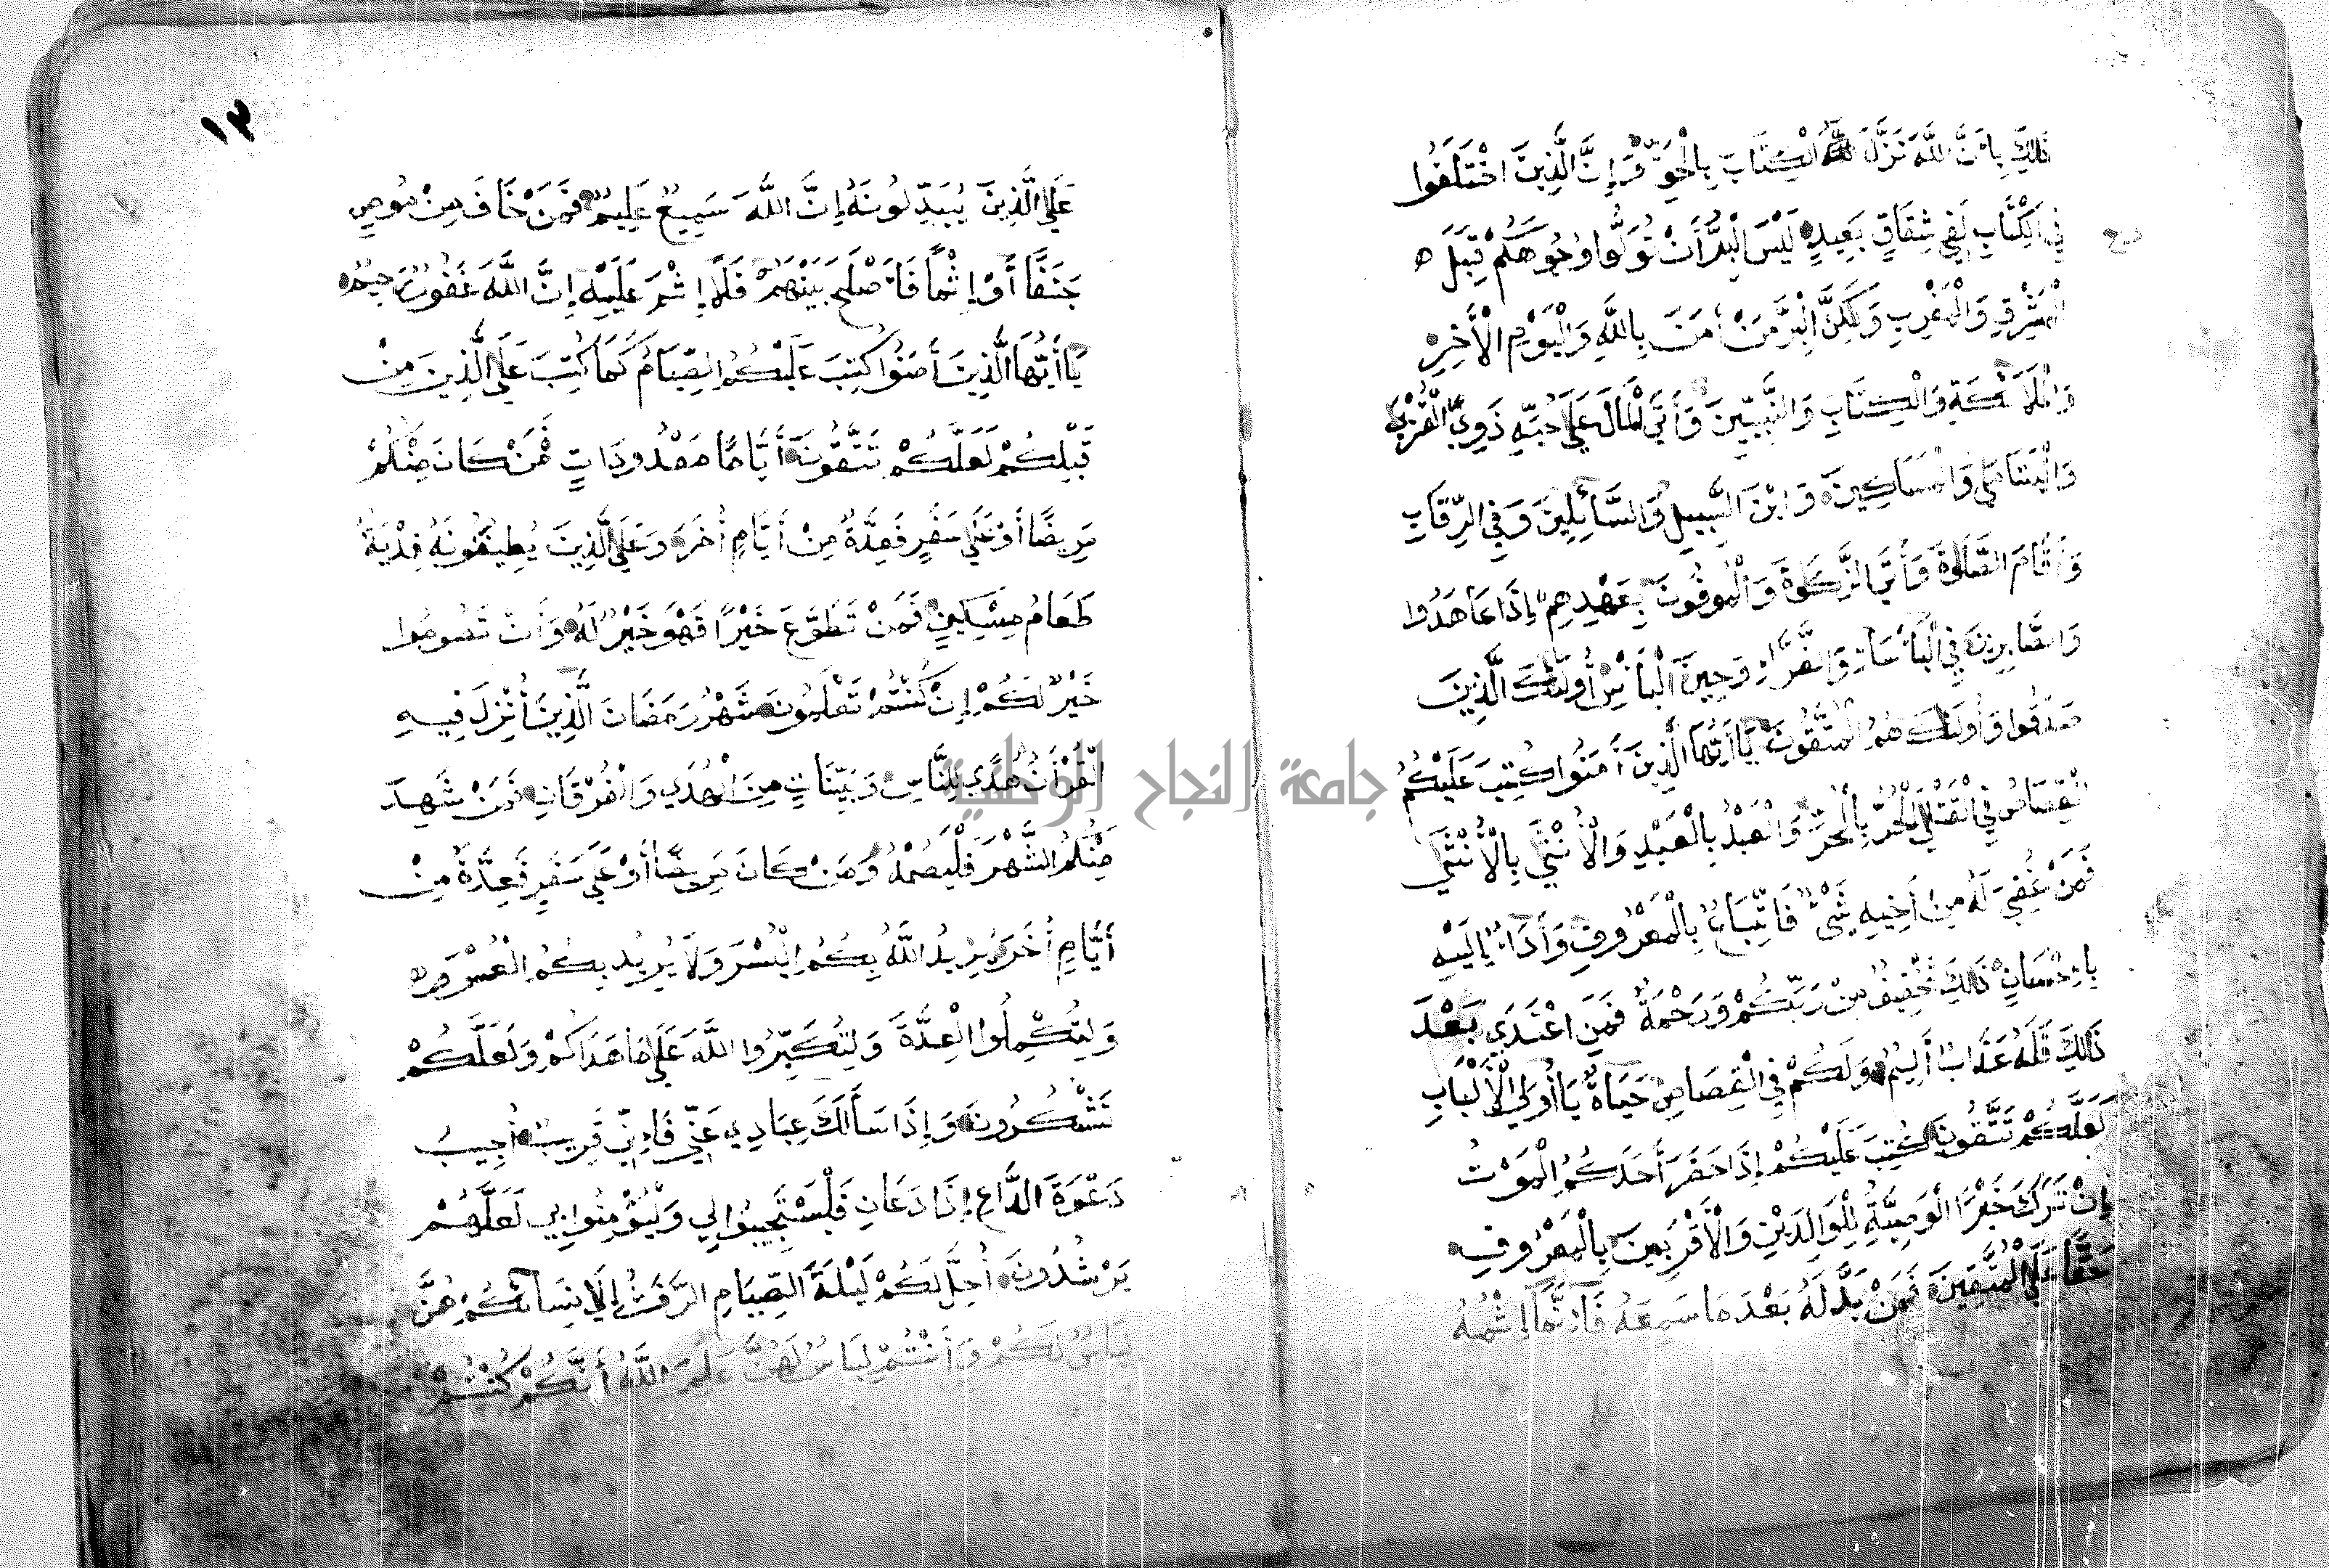 ذَلِكَ بِأَنَّ اللَّهَ نَزَّلَ الْكِتَابَ بِالْحَقِّ وَإِنَّ الَّذِينَ اخْتَلَفُوا
فِي الْكِتَابِ لَفِي شِقَاقٍ بَعِيدٍ لَيْسَ الْبِرَّ أَنْ تُوَلُّوا وُجُوهَكُمْ قِبَلَ
الْمَشْرِقِ وَالْمَغْرِبِ وَلَكِنَّ الْبِرَّ مَنْ أَمَنَ بِاللَّهِ وَالْيَوْمِ الْأَخِرِ
وَالْمَلَائِكَةِ وَالْكِتَابِ وَالنَّبِيِّينَ وَأَتَى الْمَالَ عَلَى حُبِّهِ ذَوِي الْقُرْبَى
وَالْيَتَامَى وَالْمَسَاكِينَ وَابْنَ السَّبِيلِ وَالسَّائِلِينَ وَفِي الرِّقَابِ
وَأَقَامَ الصَّلَوةَ وَأَتَى الزَّكَوةَ وَالْمُوفُونَ بِعَهْدِهِمْ إِذَا عَاهَدُوا
وَالصَّابِرِينَ فِي الْبَأْسَاءِ وَالضَّرَّاءِ وَحِينَ الْبَأْسِ أُولَئِكَ الَّذِينَ
صَدَقُوا وَأُولَئِكَ هُمُ الْمُتَّقُونَ يَاأَيُّهَا الَّذِينَ أَمَنُوا كُتِبَ عَلَيْكُمُ
الْقِصَاصُ فِي الْقَتْلَى الْحُرُّ بِالْحُرِّ وَالْعَبْدُ بِالْعَبْدِ وَالْأُنْثَى بِالْأُنْثَى
فَمَنْ عُفِيَ لَهُ مِنْ أَخِيهِ شَيْءٌ فَاتِّبَاعٌ بِالْمَعْرُوفِ وَأَدَاءٌ إِلَيْهِ
بِإِحْسَانٍ ذَلِكَ تَخْفِيفٌ مِنْ رَبِّكُمْ وَرَحْمَةٌ فَمَنِ اعْتَدَى بَعْدَ
ذَلِكَ فَلَهُ عَذَابٌ أَلِيمٌ وَلَكُمْ فِي الْقِصَاصِ حَيَاةٌ يَاأُولِي الْأَلْبَابِ
لَعَلَّكُمْ تَتَّقُونَ كُتِبَ عَلَيْكُمْ إِذَا حَضَرَ أَحَدَكُمُ الْمَوْتُ
إِنْ تَرَكَ خَيْرًا الْوَصِيَّةُ لِلْوَالِدَيْنِ وَالْأَقْرَبِينَ بِالْمَعْرُوفِ
حَقًّا عَلَى الْمُتَّقِينَ فَمَنْ بَدَّلَهُ بَعْدَ مَا سَمِعَهُ فَإِنَّمَا إِثْمُهُ
١٣
عَلَى الَّذِينَ يُبَدِّلُونَهُ إِنَّ اللَّهَ سَمِيعٌ عَلِيمٌ فَمَنْ خَافَ مِنْ مُوصٍ
جَنَفًا أَوْ إِثْمًا فَأَصْلَحَ بَيْنَهُمْ فَلَا إِثْمَ عَلَيْهِ إِنَّ اللَّهَ غَفُورٌ رَحِيمٌ
يَاأَيُّهَا الَّذِينَ أَمَنُوا كُتِبَ عَلَيْكُمُ الصِّيَامُ كَمَا كُتِبَ عَلَى الَّذِينَ مِنْ
قَبْلِكُمْ لَعَلَّكُمْ تَتَّقُونَ أَيَّامًا مَعْدُودَاتٍ فَمَنْ كَانَ مِنْكُمْ
مَرِيضًا أَوْ عَلَى سَفَرٍ فَعِدَّةٌ مِنْ أَيَّامٍ أُخَرَ وَعَلَى الَّذِينَ يُطِيقُونَهُ فِدْيَةٌ
طَعَامُ مِسْكِينٍ فَمَنْ تَطَوَّعَ خَيْرًا فَهُوَ خَيْرٌ لَهُ وَأَنْ تَصُومُوا
خَيْرٌ لَكُمْ إِنْ كُنْتُمْ تَعْلَمُونَ شَهْرُ رَمَضَانَ الَّذِي أُنْزِلَ فِيهِ
الْقُرْأَنُ هُدًى لِلنَّاسِ وَبَيِّنَاتٍ مِنَ الْهُدَى وَالْفُرْقَانِ فَمَنْ شَهِدَ
مِنْكُمُ الشَّهْرَ فَلْيَصُمْهُ وَمَنْ كَانَ مَرِيضًا أَوْ عَلَى سَفَرٍ فَعِدَّةٌ مِنْ
أَيَّامٍ أُخَرَ يُرِيدُ اللَّهُ بِكُمُ الْيُسْرَ وَلَا يُرِيدُ بِكُمُ الْعُسْرَ
وَلِتُكْمِلُوا الْعِدَّةَ وَلِتُكَبِّرُوا اللَّهَ عَلَى مَا هَدَاكُمْ وَلَعَلَّكُمْ
تَشْكُرُونَ وَإِذَا سَأَلَكَ عِبَادِي عَنِّي فَإِنِّي قَرِيبٌ أُجِيبُ
دَعْوَةَ الدَّاعِ إِذَا دَعَانِ فَلْيَسْتَجِيبُوا لِي وَلْيُؤْمِنُوا بِي لَعَلَّهُمْ
يَرْشُدُونَ أُحِلَّ لَكُمْ لَيْلَةَ الصِّيَامِ الرَّفَثُ إِلَى نِسَائِكُمْ هُنَّ
لِبَاسٌ لَكُمْ وَأَنْتُمْ لِبَاسٌ لَهُنَّ عَلِمَ اللَّهُ أَنَّكُمْ كُنْتُمْ
جامعة النجاح الوطنية